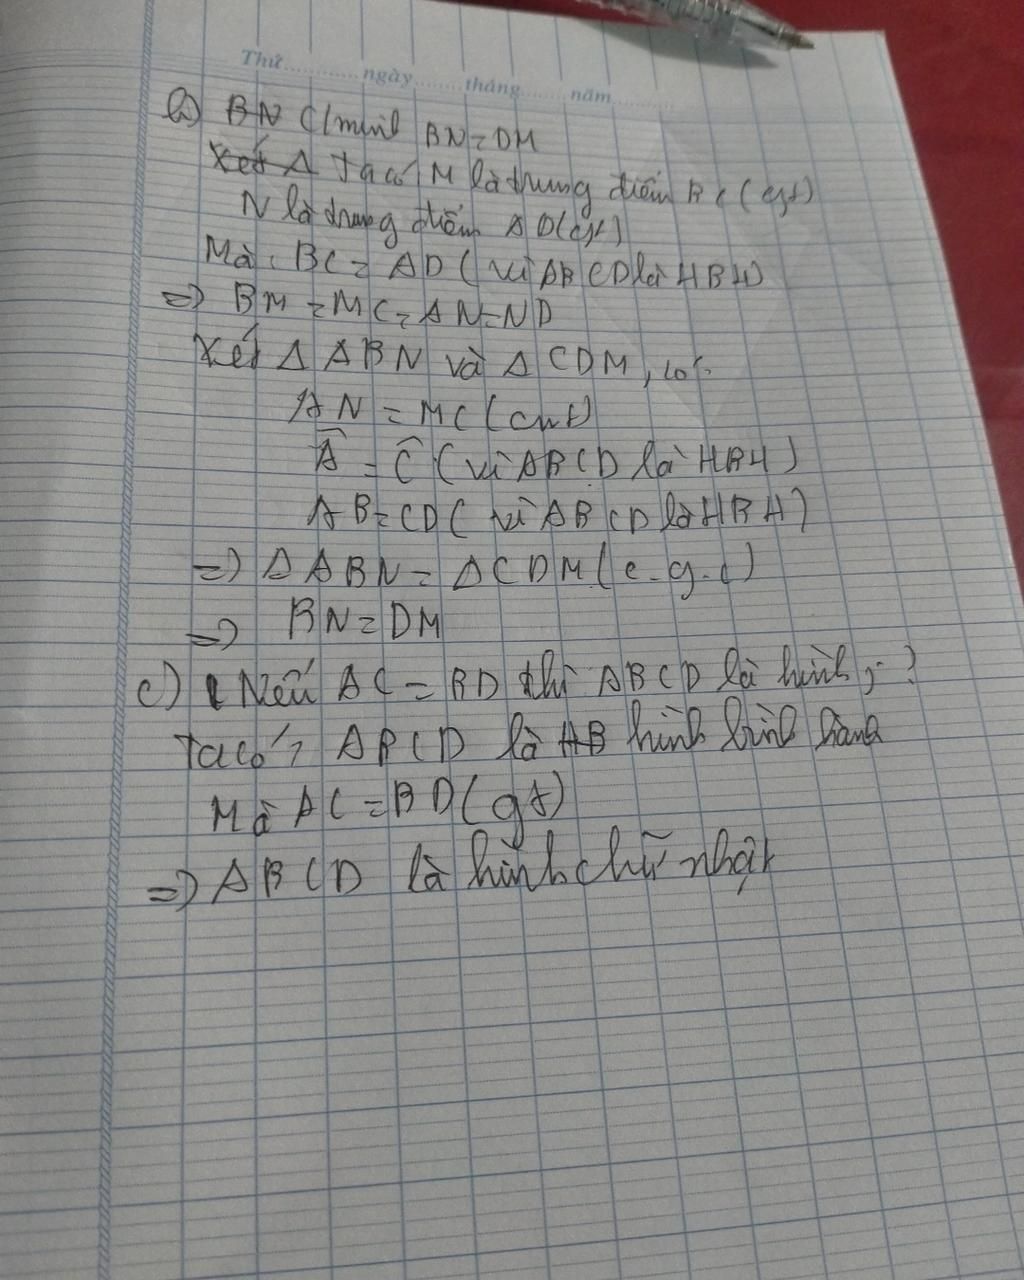 Thứ............ngày.......tháng.......năm...........
b) BN C/minh BN=DM
Xét Δ Ta có M là trung điểm BC (gt)
N là trung điểm AD (gt)
Mà: BC = AD (vì ABCD là HBH)
=> BM = MC = AN = ND
Xét Δ ABN và Δ CDM, có:
AN = MC (cmt)
Â = Ĉ (vì ABCD là HBH)
AB = CD (vì ABCD là HBH)
=> Δ ABN = Δ CDM (c.g.c)
=> BN = DM
c) Nếu AC = BD thì ABCD là hình j?
Ta có: ABCD là HB hình bình hành
Mà AC = BD (gt)
=> ABCD là hình chữ nhật